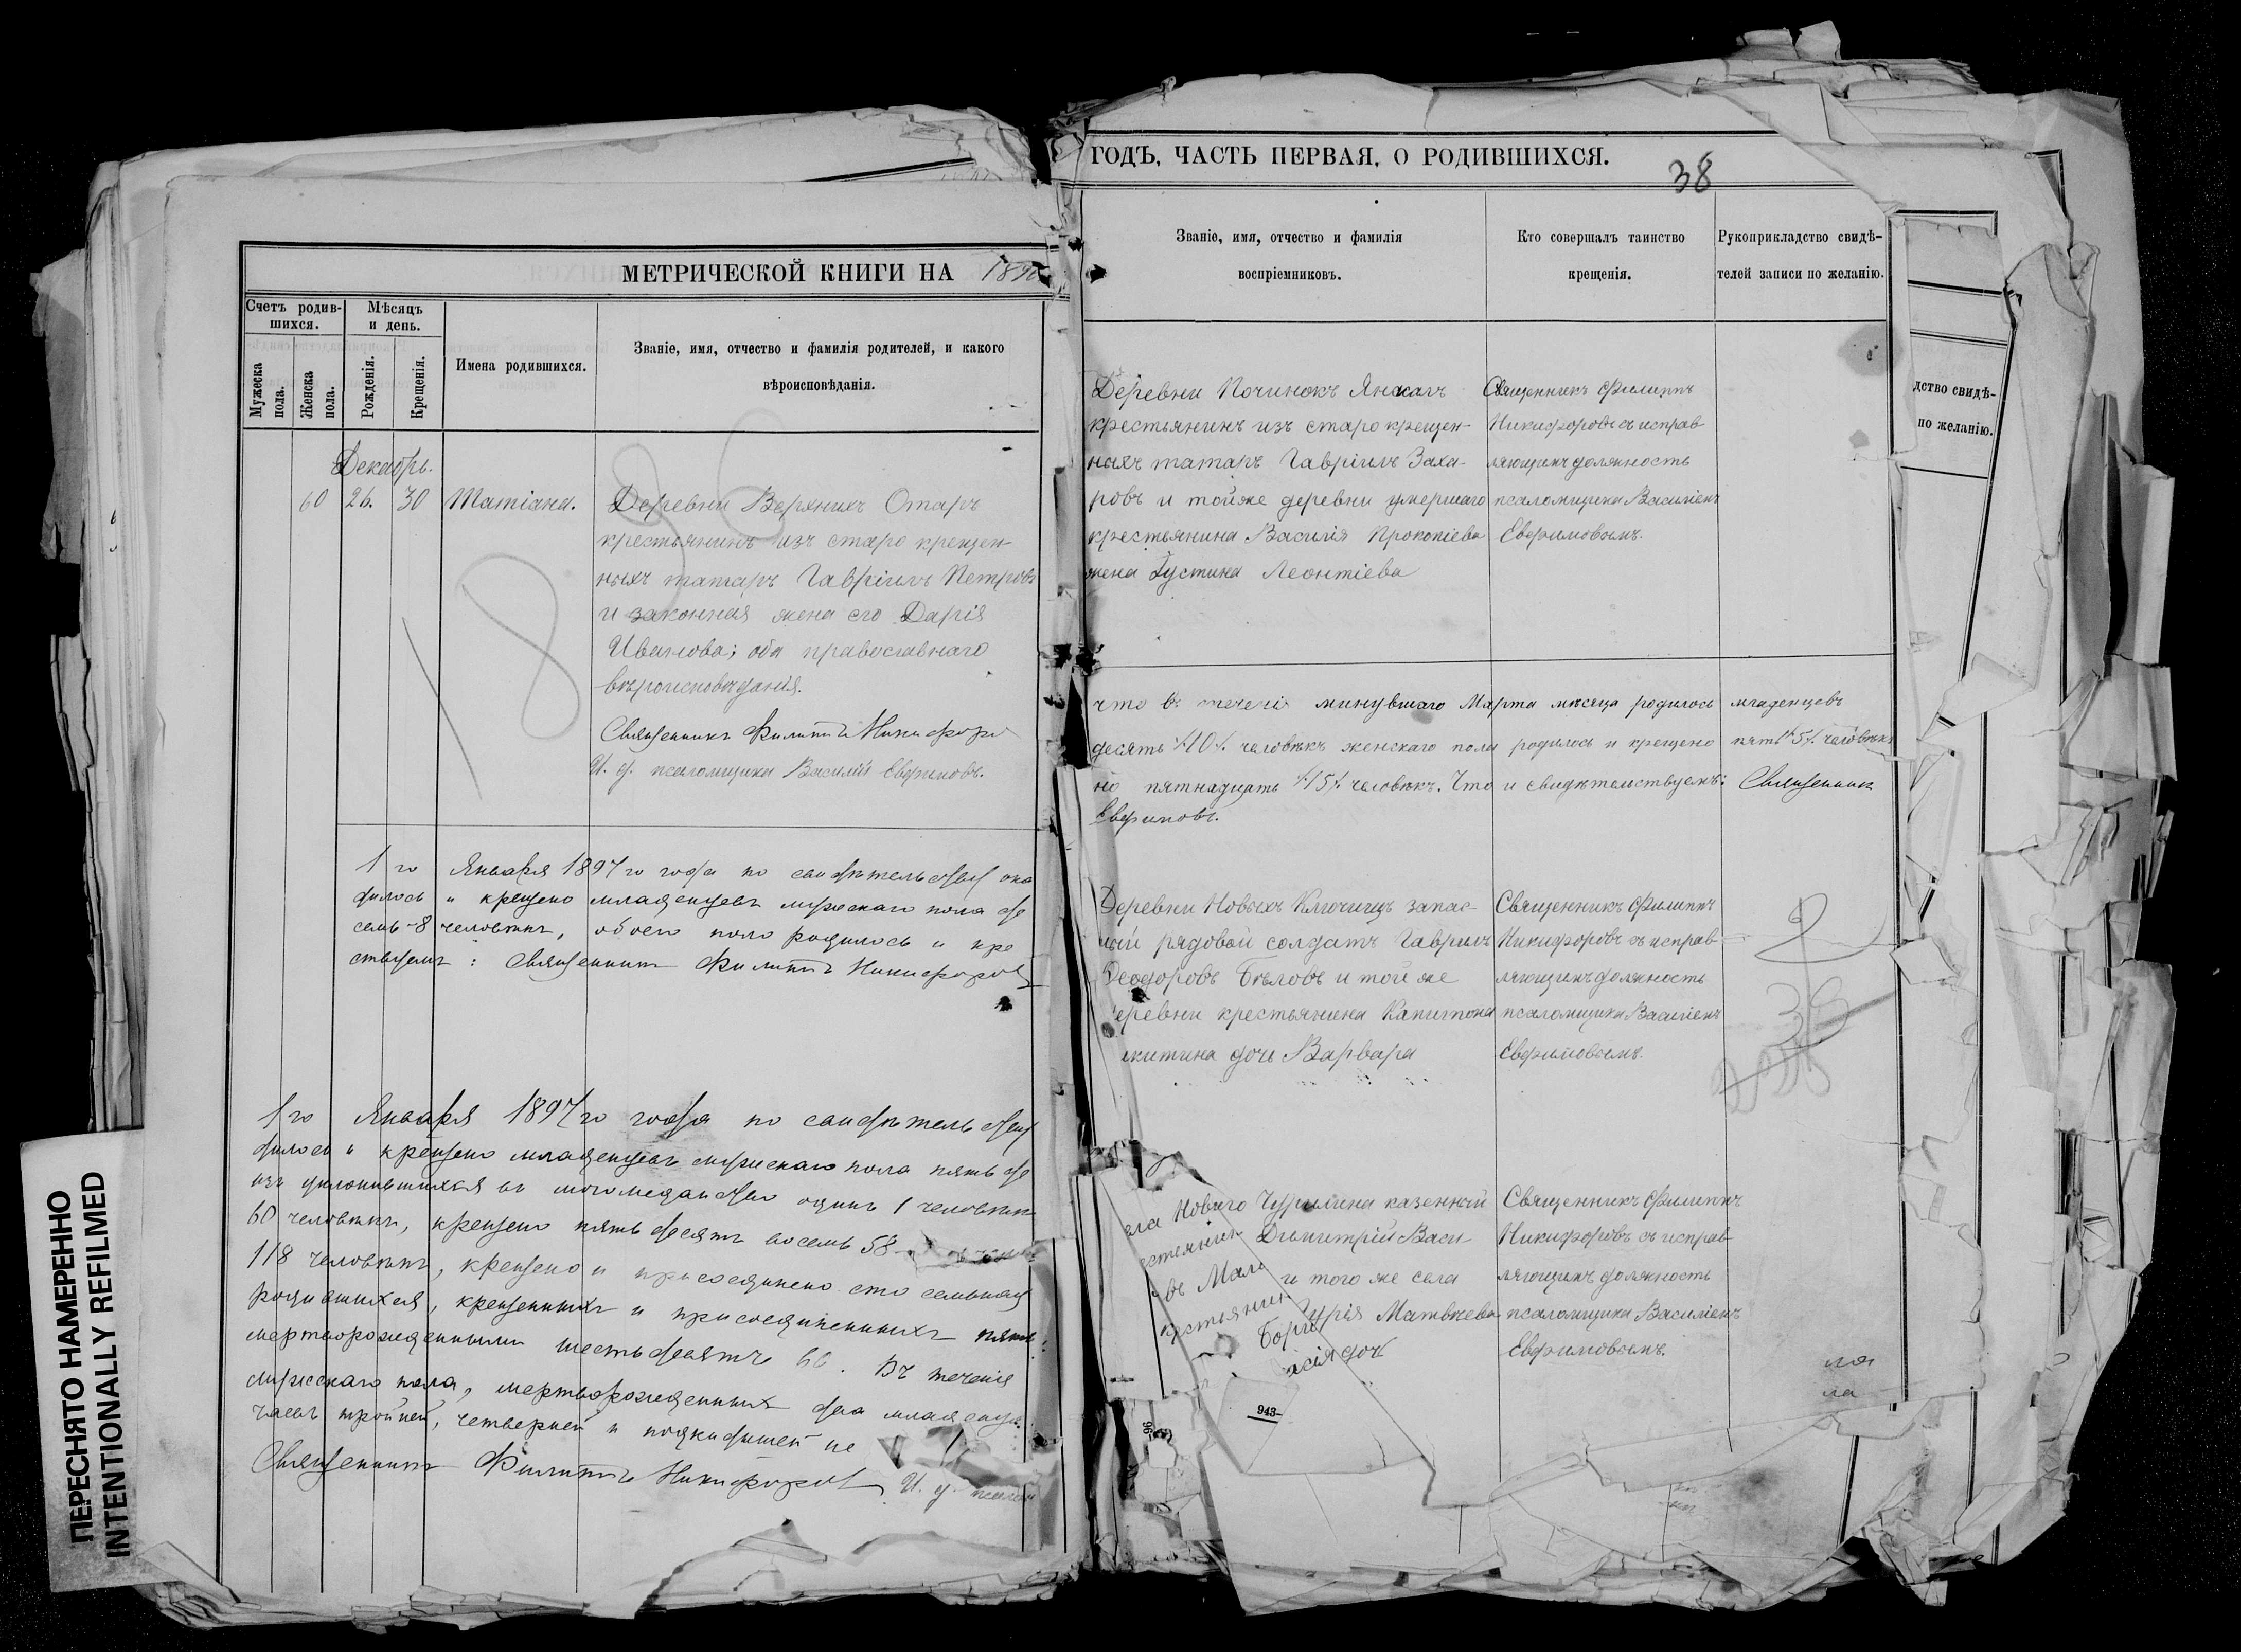 МЕТРИЧЕСКОЙ КНИГИ НА 1896
Счетъ родив-
шихся.
Мѣсяцъ
и день.
Мужеска
пола.
Женска
пола.
Рожденія.
Крещенія.
Имена родившихся.
Званіе, имя, отчество и фамилія родителей, и какого
вѣроисповѣданія.
Декабрь.
60 26. 30 Татіана. Деревни Верхнихъ Отаръ
крестьянинъ изъ старо крещен-
ныхъ татаръ Гавріилъ Петровъ
и законная жена его Дарія
Иванова; оба православнаго
вѣроисповѣданія.
Священникъ Филиппъ Никифоров
И. д. псаломщика Василій Евфимовъ.
1 го Января 1897 го года по
дилось и крещено младенцевъ мужескаго пола де
семь-8 человѣкъ, обоего пола родилось и кре
ствуемъ: Священникъ Филиппъ Никифоровъ
1 го Января 1897 го года по
дилось и крещено младенцевъ мужескаго пола пять де
изъ уклонившихся въ могомеданство одинъ 1 человѣкъ
60 человѣкъ, крещено пять десятъ восемь 58
118 человѣкъ, крещено и присоединено сто семьнад
родившихся, крещенныхъ и присоединенныхъ
мертворожденными шесть десятъ 60. Въ теченіе
мужескаго пола, мертворожденныхъ два младенца
тройней, четверней и подкидышей не
Священникъ Филиппъ Никифоровъ И. д. псалом
ГОДЪ, ЧАСТЬ ПЕРВАЯ, О РОДИВШИХСЯ.
38
Званіе, имя, отчество и фамилія
воспріемниковъ.
Кто совершалъ таинство
крещенія.
Рукоприкладство свидѣ-
телей записи по желанію.
Деревни Починокъ Янсалъ
крестьянинъ изъ старо крещен-
ныхъ татаръ Гавріилъ Заха-
ровъ и той же деревни умершаго
крестьянина Василія Прокопіева
жена Іустина Леонтіева
Священникъ Филиппъ
Никифоровъ съ исправ-
ляющимъ должность
псаломщика Василіемъ
Евфимовымъ.
что въ теченіи минувшаго Марта мѣсяца родилось младенцевъ
десять /10/ человѣкъ женскаго пола родилось и крещено пять /5/ человѣкъ
но пятнадцать /15/ человѣкъ. Что и свидѣтельствуемъ: Священникъ
Евфимовъ.
Деревни Новыхъ Ключищъ запас-
ный рядовой солдатъ Гавріилъ
Ѳеодоровъ Бѣловъ и той же
деревни крестьянина Капитона
икитина дочь Варвара
Священникъ Филиппъ
Никифоровъ съ исправ-
ляющимъ должность
псаломщика Василіемъ
Евфимовымъ.
ела Новаго Чурилина казенный
естьянинъ Димитрій Васи-
въ Мал и того же села
крестьянин Гурія Матвѣева
Борис
ксія дочь
Священникъ Филиппъ
Никифоровъ съ исправ-
ляющимъ должность
псаломщика Василіемъ
Евфимовымъ.
ла
ла
943-
96
дство свидѣ-
по желанію.
ПЕРЕСНЯТО НАМЕРЕННО
INTENTIONALLY REFILMED